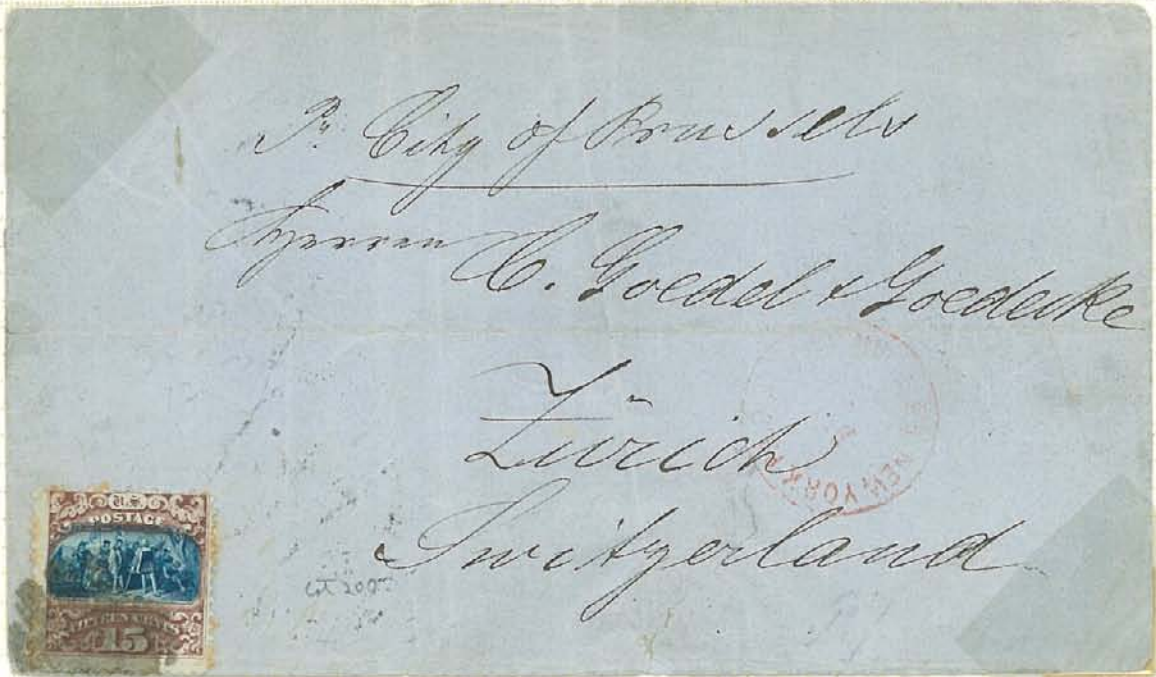 Pr. City of Brussels
Herren C. Goedel & Goedecke
Zürich
Switzerland
NEW YORK
U.S.
POSTAGE
FIFTEEN CENTS
15